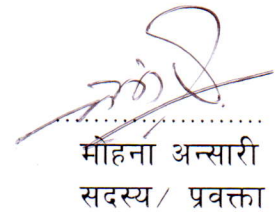 मोहना अन्सारी
सदस्य / प्रवक्ता